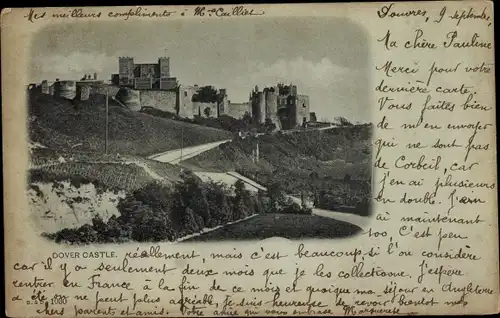 Mes meilleurs compliments à Mr Caillier
Londres, 9 septembre,
Ma chère Pauline
Merci pour votre
dernière carte.
Vous faites bien
de m'en envoyer
qui ne sont pas
de Corbeil, car
j'en ai plusieurs
en double. J'en
ai maintenant
100. C'est peu
DOVER CASTLE. réellement, mais c'est beaucoup si l'on considère
car il y a seulement deux mois que je les collectionne. J'espère
rentrer en France à la fin de ce mois et quoique ma séjour en Angleterre
a été on ne peut plus agréable, je suis heureuse de revoir bientôt mes
chers parents et amis. Votre amie qui vous embrasse Marguerite